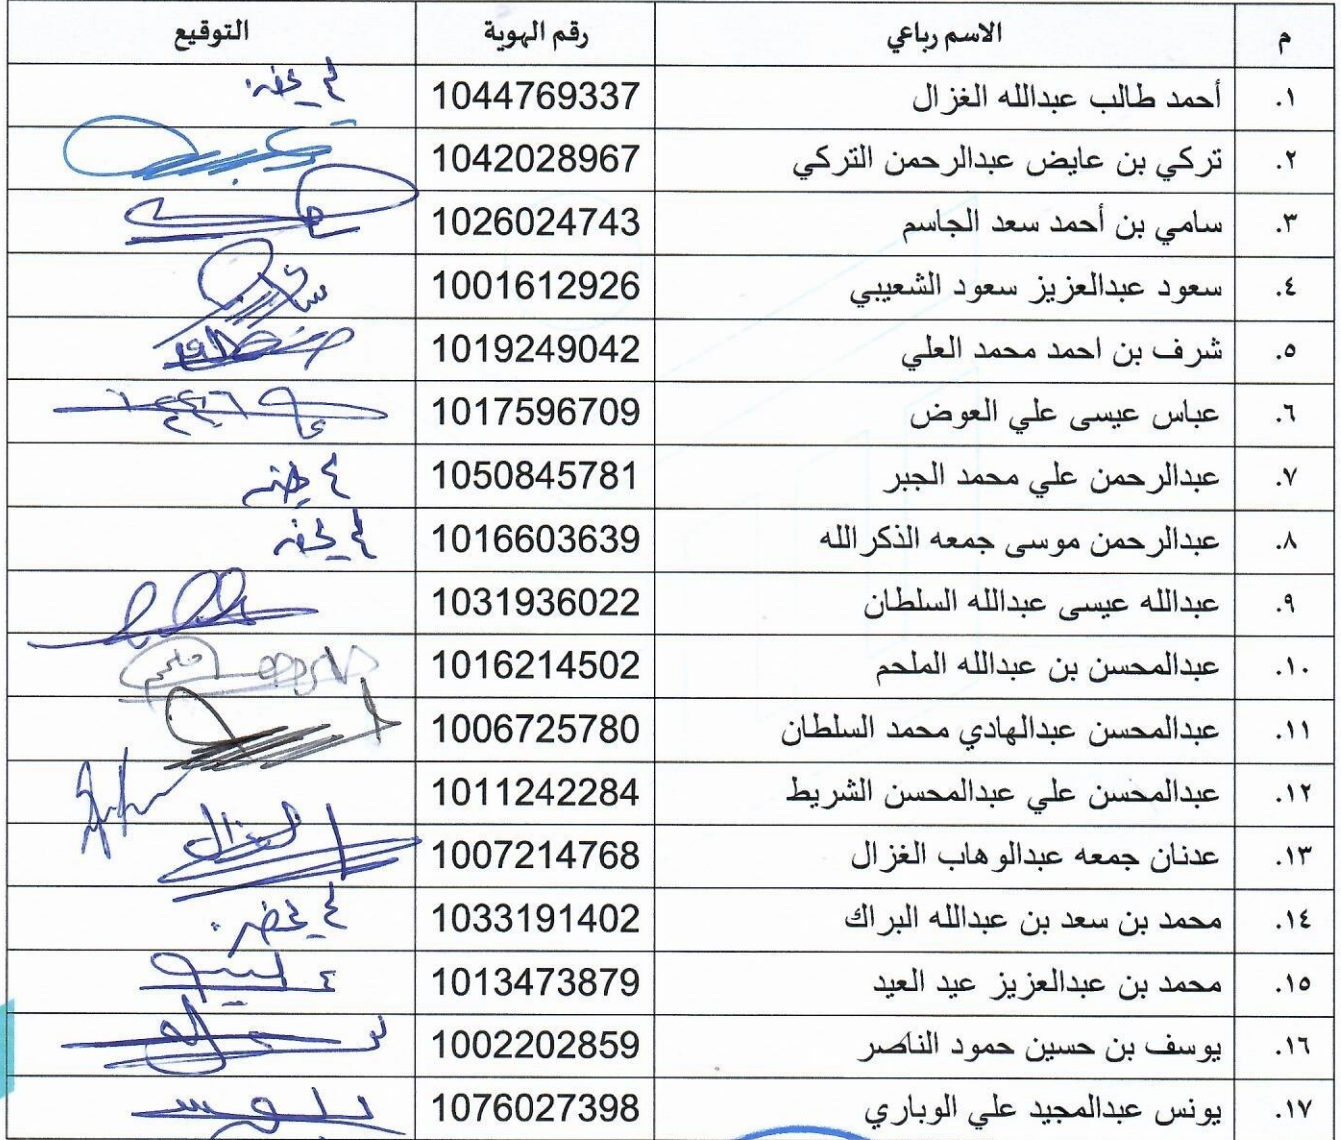 م الاسم رباعي رقم الهوية التوقيع
١. أحمد طالب عبدالله الغزال 1044769337 لم يحضر
٢. تركي بن عايض عبدالرحمن التركي 1042028967
٣. سامي بن أحمد سعد الجاسم 1026024743
٤. سعود عبدالعزيز سعود الشعيبي 1001612926
٥. شرف بن احمد محمد العلي 1019249042
٦. عباس عيسى علي العوض 1017596709
٧. عبدالرحمن علي محمد الجبر 1050845781 لم يحضر
٨. عبدالرحمن موسى جمعه الذكرالله 1016603639 لم يحضر
٩. عبدالله عيسى عبدالله السلطان 1031936022
١٠. عبدالمحسن بن عبدالله الملحم 1016214502
١١. عبدالمحسن عبدالهادي محمد السلطان 1006725780
١٢. عبدالمحسن علي عبدالمحسن الشريط 1011242284
١٣. عدنان جمعه عبدالوهاب الغزال 1007214768
١٤. محمد بن سعد بن عبدالله البراك 1033191402 لم يحضر
١٥. محمد بن عبدالعزيز عيد العيد 1013473879
١٦. يوسف بن حسين حمود الناصر 1002202859
١٧. يونس عبدالمجيد علي الوباري 1076027398